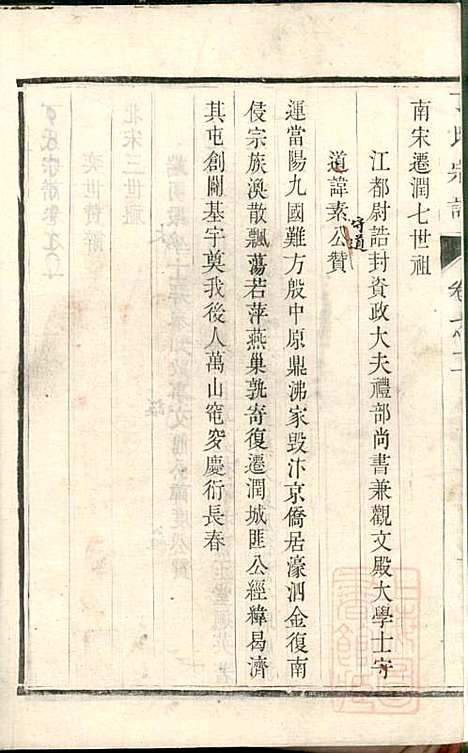 氏宗譜
卷
南宋遷潤七世祖
江都尉誥封資政大夫禮部尚書兼觀文殿大學士守
道諱素公贊
守道
運當陽九國難方殷中原鼎沸家毀汴京僑居濠泗金復南
侵宗族渙散飄蕩若萍燕巢孰寄復遷潤城匪公經緯曷濟
其屯創闢基宇奠我後人萬山窀穸慶衍長春